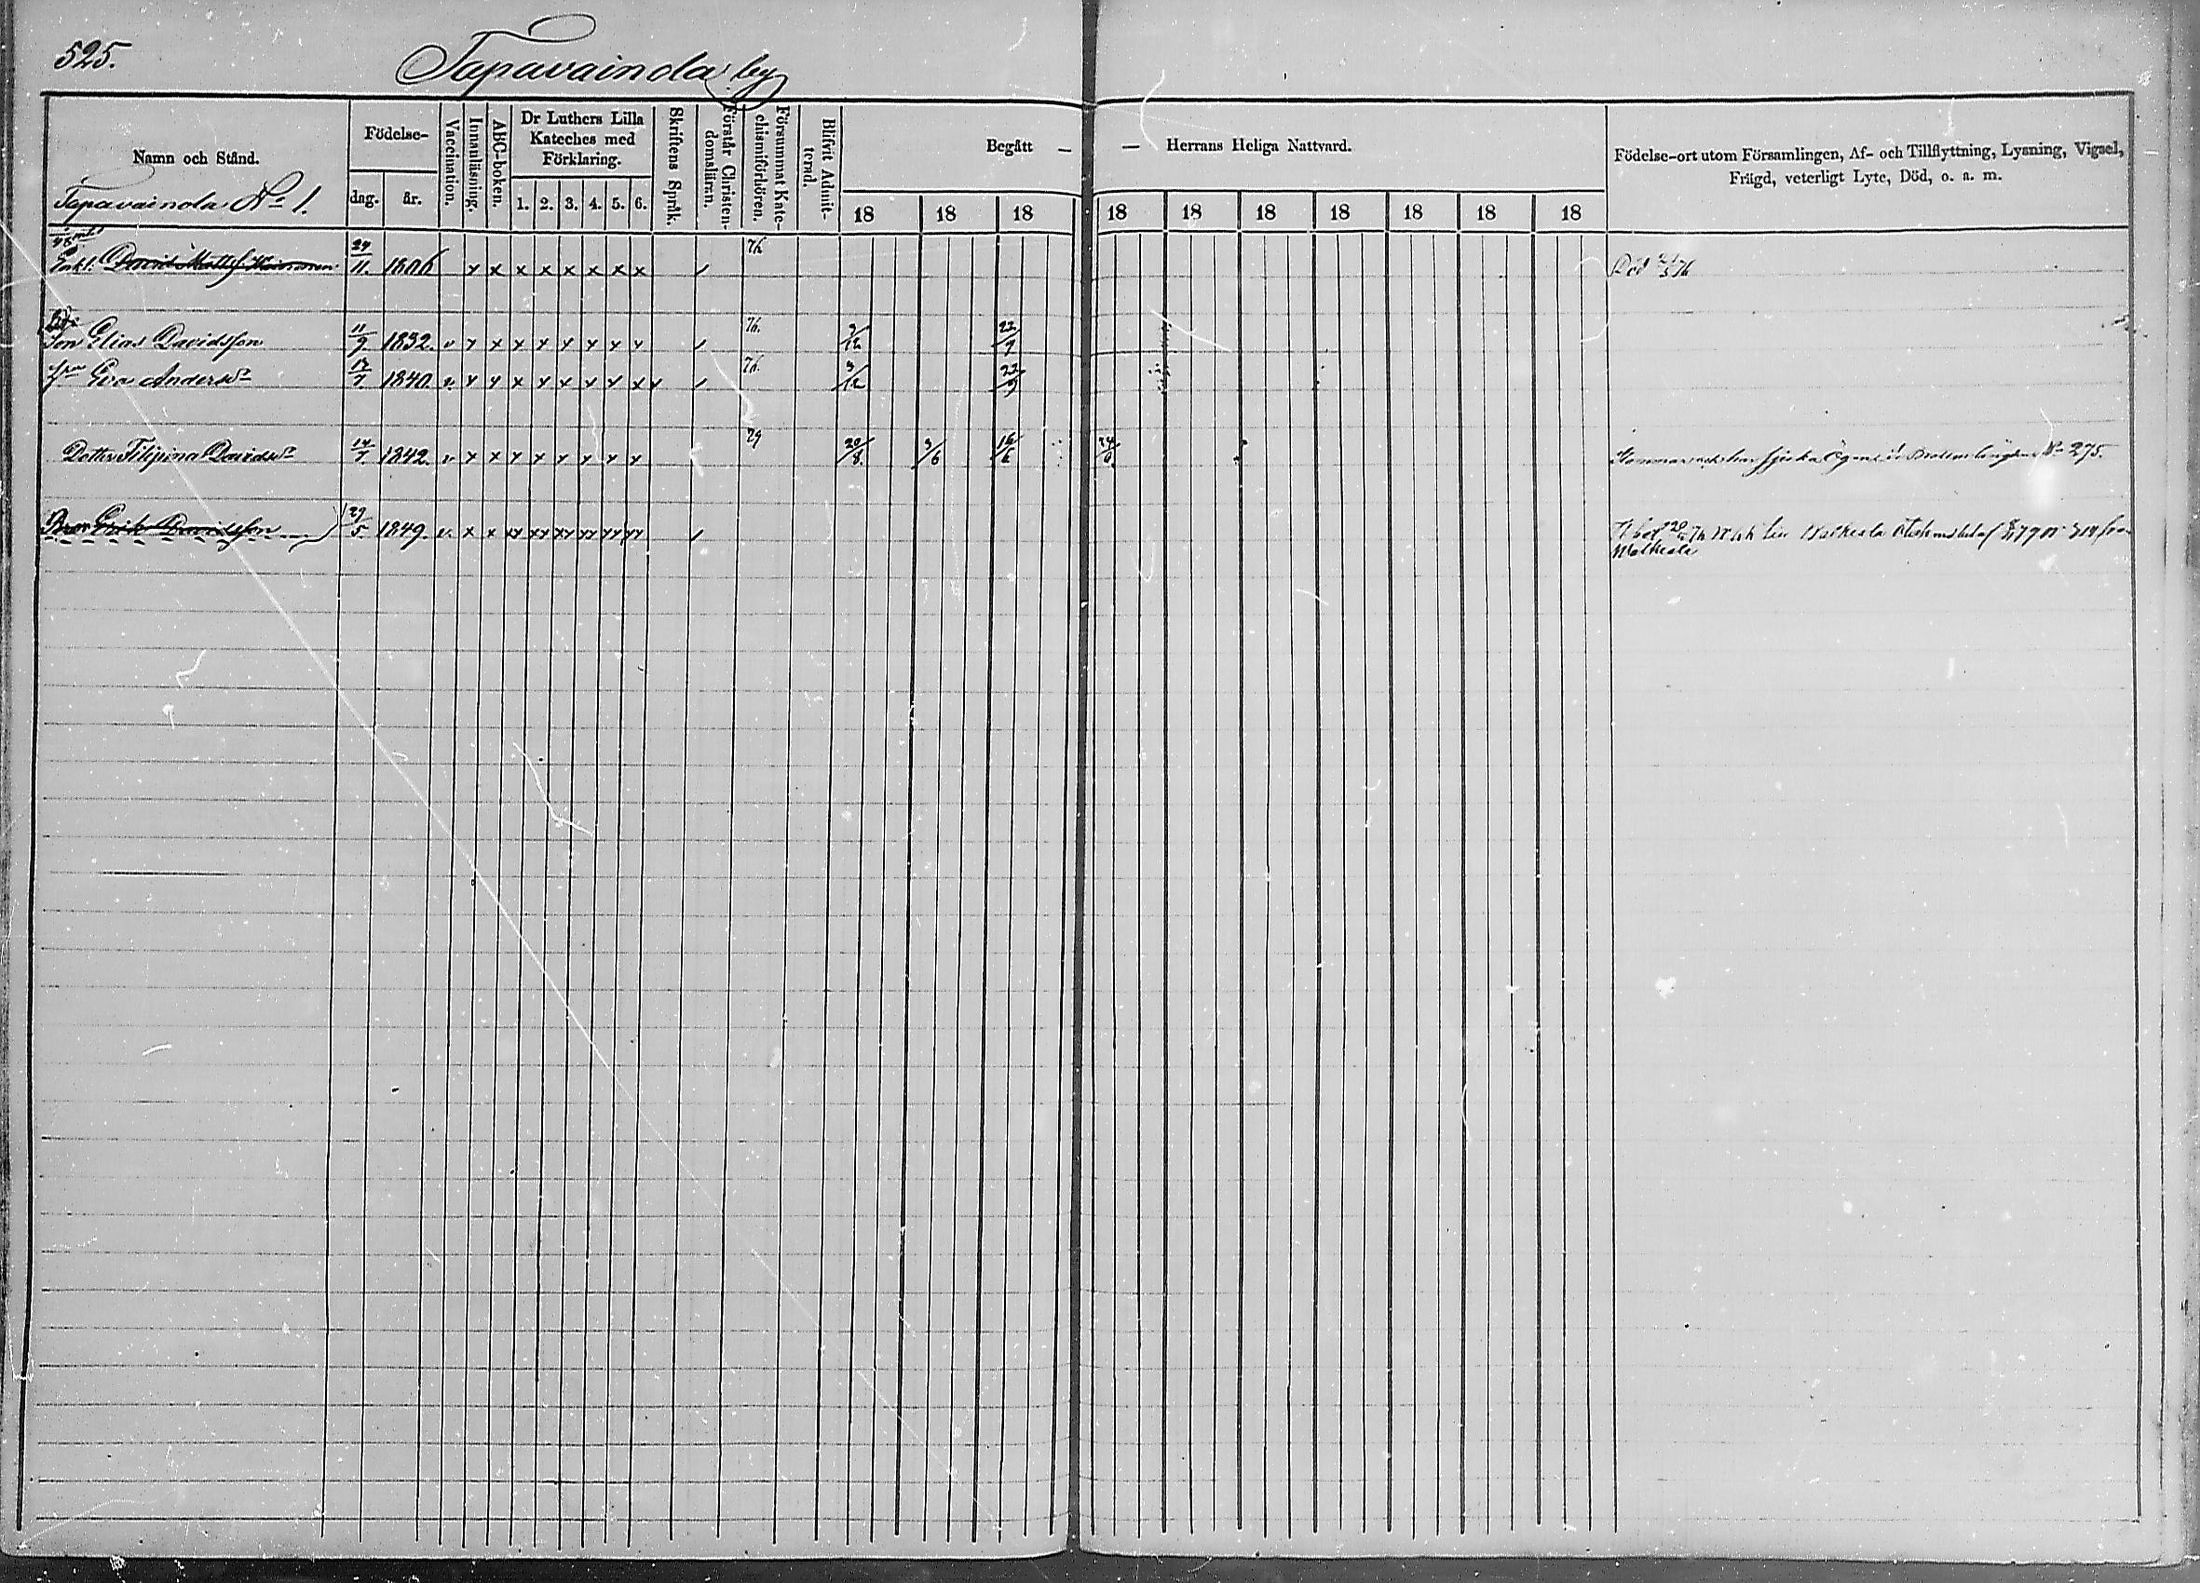 525.
Tapavainola by
Namn och Stånd.
Födelse-
dag.
år.
Vaccination.
Innanläsning.
ABC-boken.
Dr Luthers Lilla
Kateches med
Förklaring.
1. 2. 3. 4. 5. 6.
Skriftens Språk.
Förstår Christen-
domsläran.
Försummat Kate-
chismiförhören.
Blifvit Admit-
terad.
Begått — — Herrans Heliga Nattvard.
18 18 18 18 18 18 18 18 18 18
Födelse-ort utom Församlingen, Af- och Tillflyttning, Lysning, Vigsel,
Frägd, veterligt Lyte, Död, o. a. m.
Tapavainola No 1.
Enkl. David Matts 24/11. 1806 x x x x x x x x 76 Död
Son Elias Davidsson 11/9. 1832. v x x x x x x x x 76. 9/12 22/9
Eva Andersdr 17/7 1840. v. x x x x x x x x x 76. 9/12 22/9
Dottr Filipina Davidsdr 14/7. 1842. v. x x x x x x x x 79 20/8. 9/6 16/6 24/6 275.
Erik Davidsson 29/5 1849. v. x x